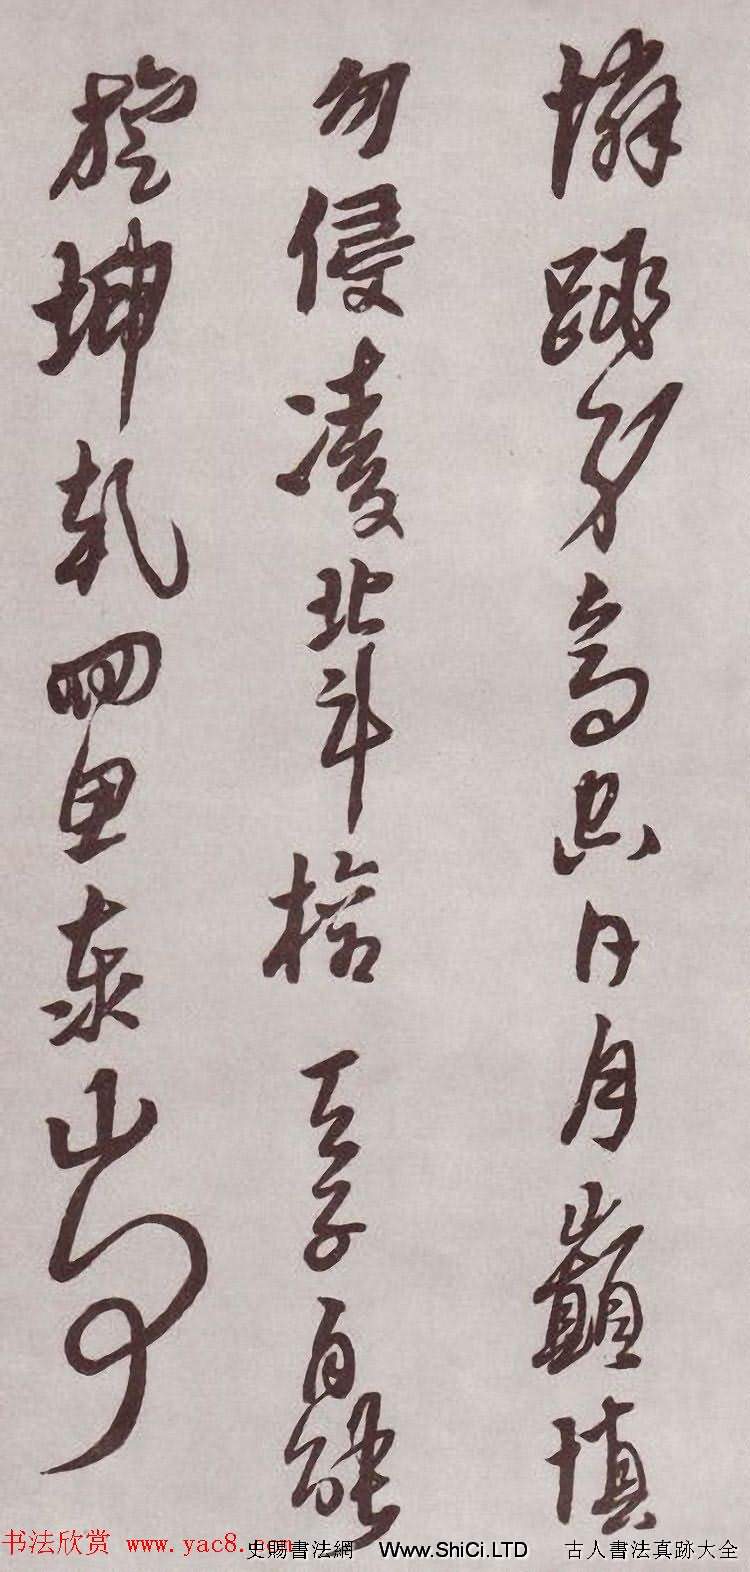 憐身高出日月巔慎
勿侵凌北斗天子自能
旋坤乾四泰山
书法欣赏 www.yac8.com
史賜書法網 Www.ShiCi.LTD 古人書法真跡大全